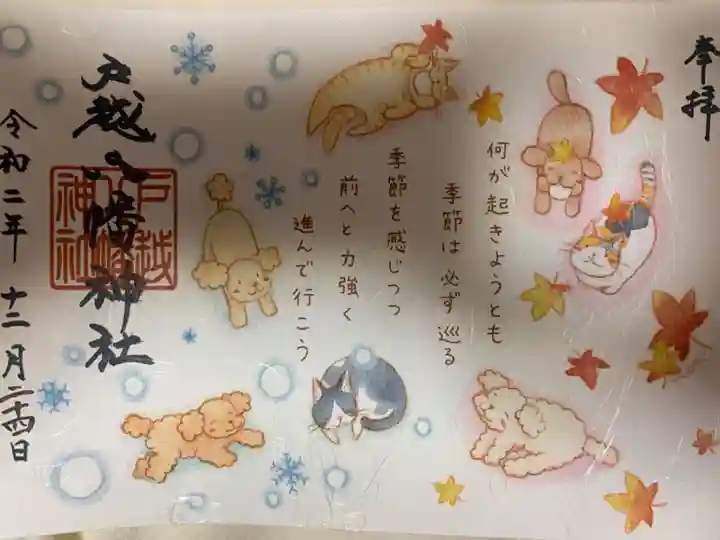 奉拝
何が起きようとも
季節は必ず巡る
季節を感じつつ
前へと力強く
進んで行こう
戸越八幡神社
戸越
八幡
神社
令和二年十二月二十四日